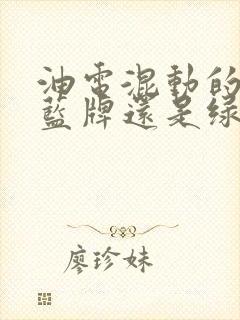 油电混動的
藍牌還是绿
廖珍妹